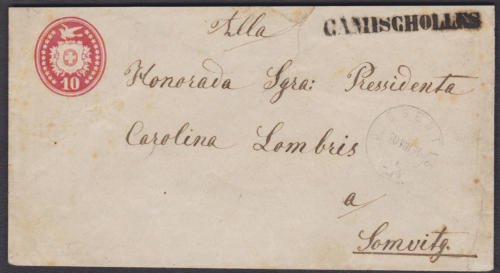 Alla
CAMISCHOLLES
10
Honorada Sgra: Pressidenta
Carolina Lombris
a
Somvitg.